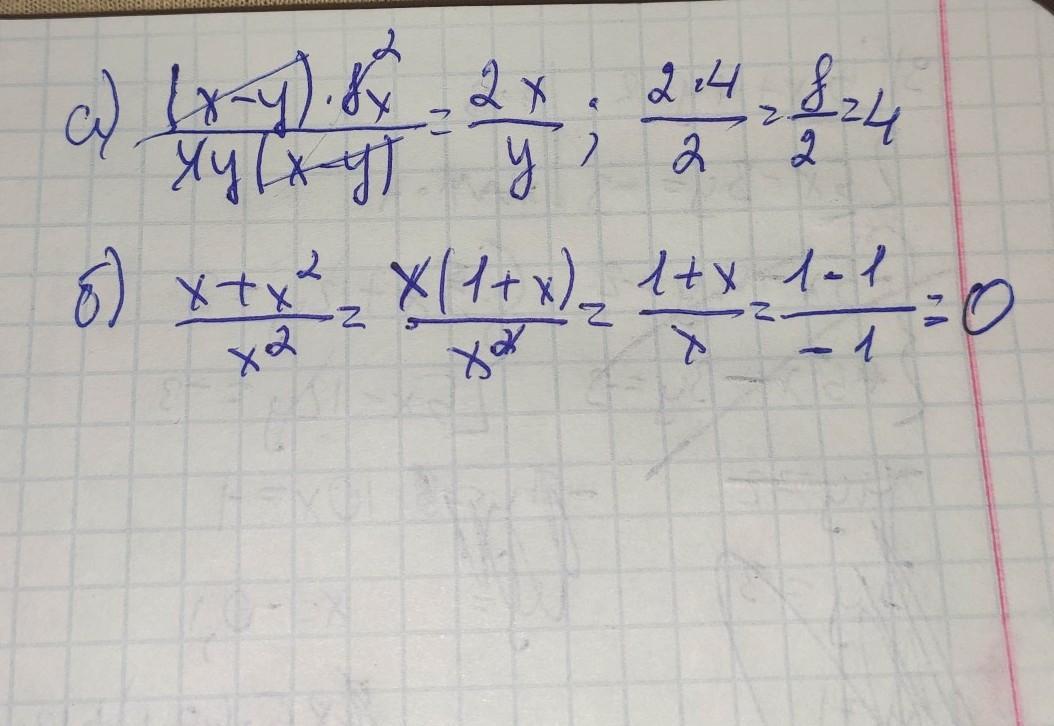 а) (x-y)·8x² / 4y(x-y) = 2x / y ; 2·4 / 2 = 8 / 2 = 4
б) x+x² / x² = x(1+x) / x² = 1+x / x = 1-1 / -1 = 0